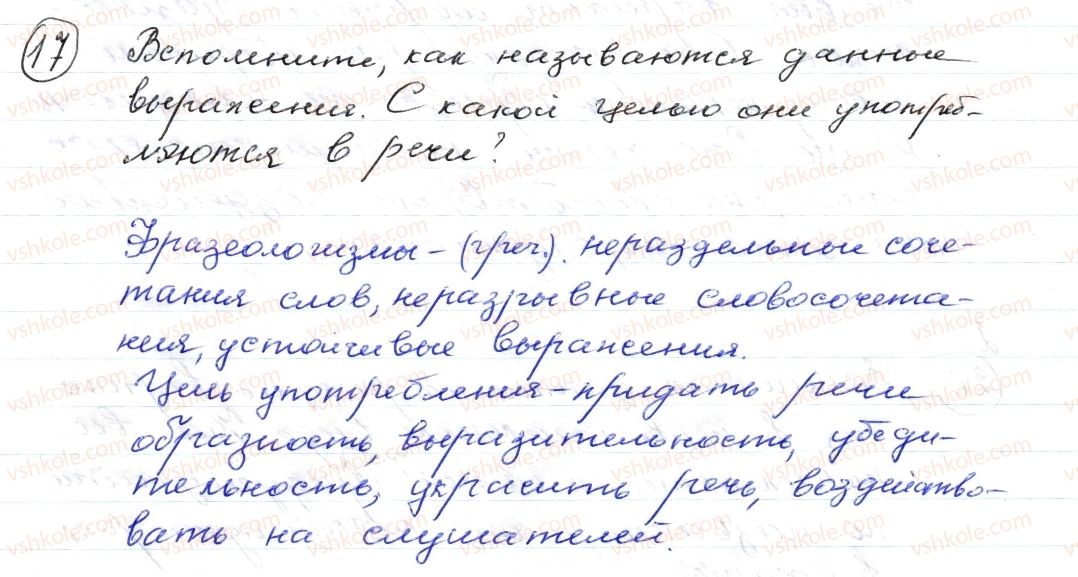 17 Вспомните, как называются данные
выражения. С какой целью они употреб-
ляются в речи?
Фразеологизмы - (греч.). нераздельные соче-
тания слов, неразрывные словосочета-
ния, устойчивые выражения.
Цель употребления - придать речи
образность, выразительность, убеди-
тельность, украсить речь, воздейство-
вать на слушателей.
vshkole.com